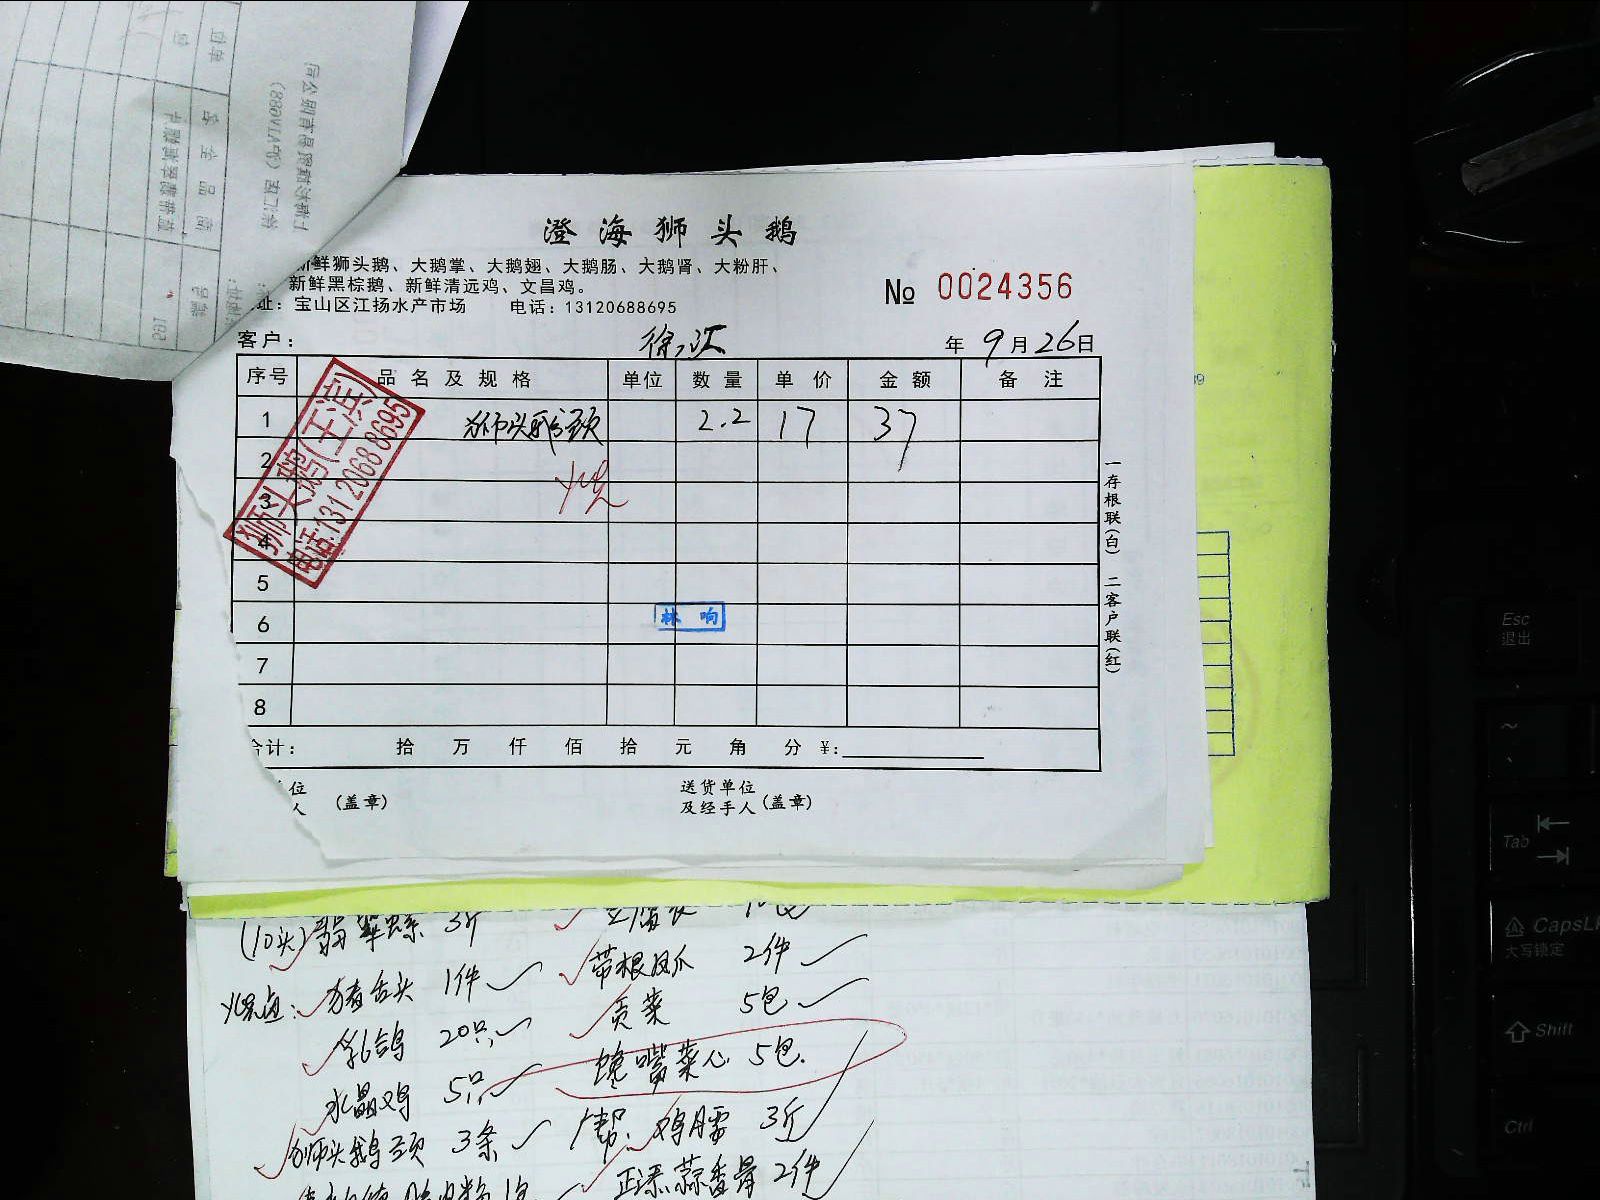 澄海狮头鹅
新鲜狮头鹅、大鹅掌、大鹅翅、大鹅肠、大鹅肾、大粉肝、
新鲜黑棕鹅、新鲜清远鸡、文昌鸡。
址：宝山区江扬水产市场 电话：13120688695
№ 0024356
客户： 徐汇 年 9月26日
序号 品名及规格 单位 数量 单价 金额 备注
1 狮头鹅颈 2.2 17 37
2
3
4
5
6
7
8
狮头鹅(王滨)
电话:13120688695
烧
林响
合计： 拾 万 仟 佰 拾 元 角 分 ￥:
位 送货单位
人 (盖章) 及经手人(盖章)
一存根联(白) 二客户联(红)
(10头)翡翠螺 3斤
烧卤: 猪舌头 1件 带根凤爪 2件
乳鸽 20只 贡菜 5包
水晶鸡 5只 馋嘴菜心 5包.
狮头鹅颈 3条 广帮: 鸡肾 3斤
2件
Esc
退出
Tab
CapsL
大写锁定
Shift
Ctrl